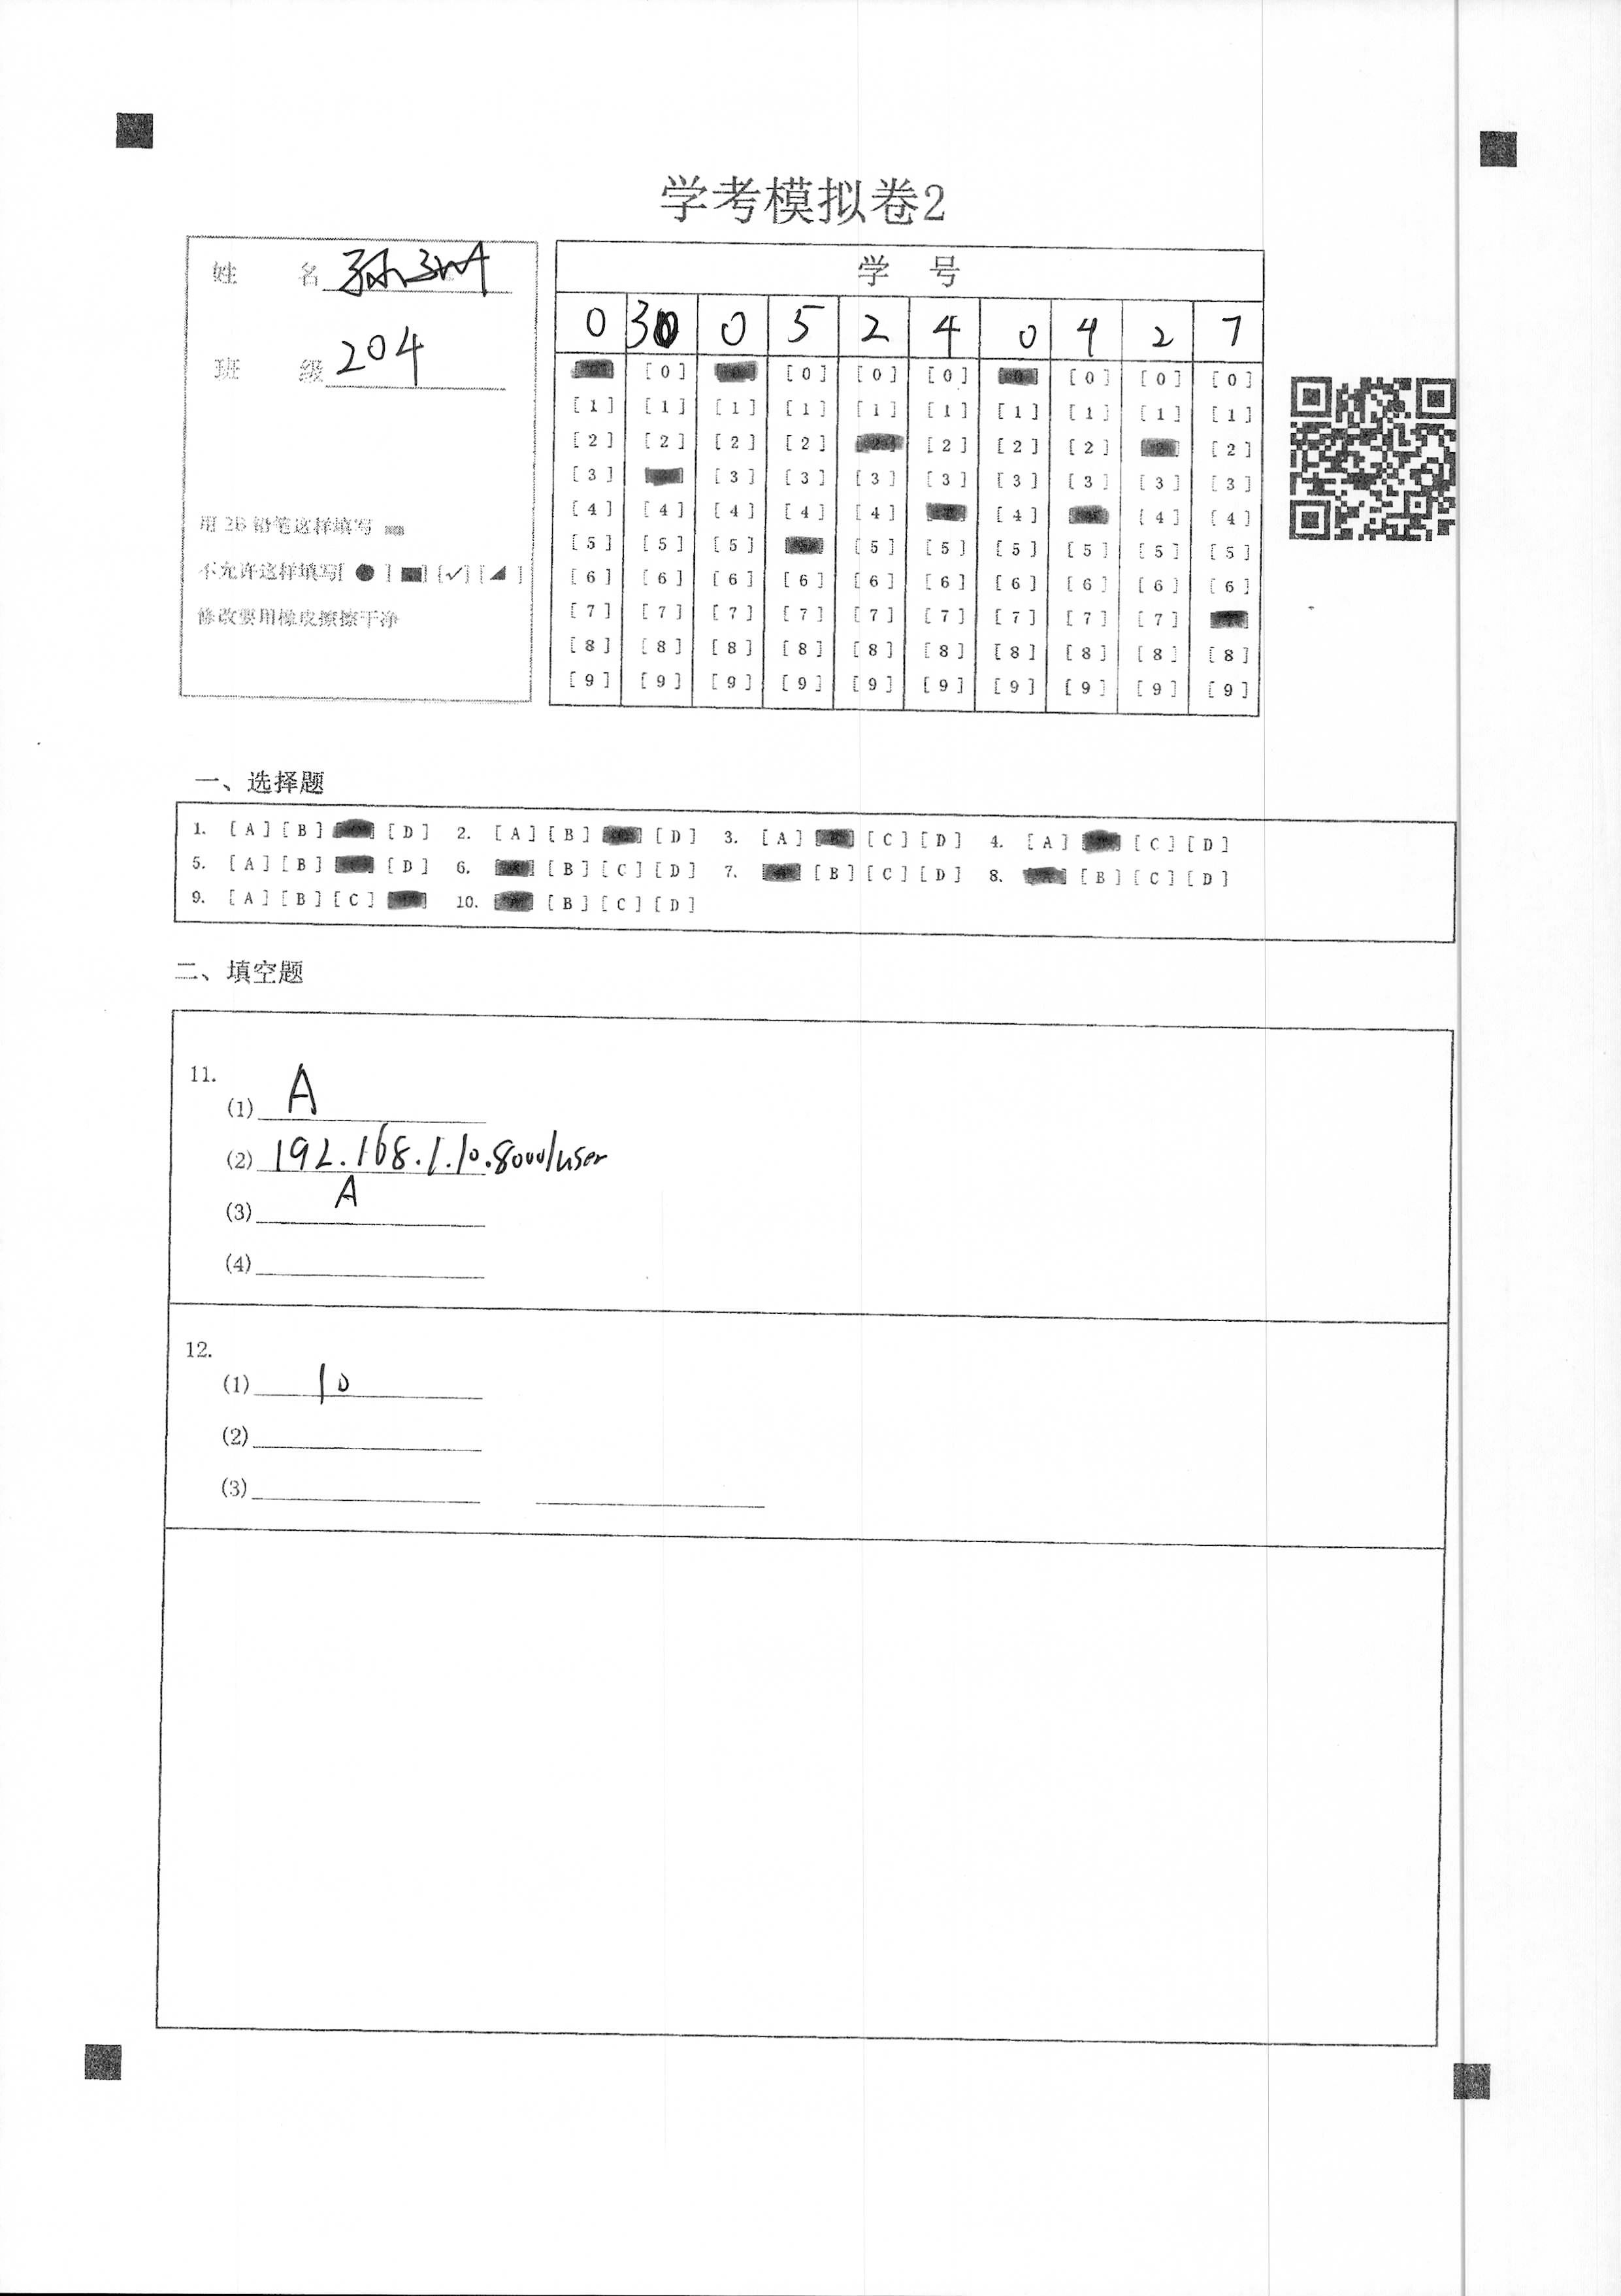 学考模拟卷2
姓 名 孙
班 级 204
用 2B 铅笔这样填写
不允许这样填写[ ● ] [■] [✓] [◢ ]
修改要用橡皮擦擦干净
学 号
0 3 0 5 2 4 0 4 2 7
[0] [0] [0] [0] [0] [0] [0]
[1] [1] [1] [1] [1] [1] [1] [1] [1] [1]
[2] [2] [2] [2] [2] [2] [2] [2]
[3] [3] [3] [3] [3] [3] [3] [3] [3]
[4] [4] [4] [4] [4] [4] [4] [4]
[5] [5] [5] [5] [5] [5] [5] [5] [5]
[6] [6] [6] [6] [6] [6] [6] [6] [6] [6]
[7] [7] [7] [7] [7] [7] [7] [7] [7]
[8] [8] [8] [8] [8] [8] [8] [8] [8] [8]
[9] [9] [9] [9] [9] [9] [9] [9] [9] [9]
一、选择题
1. [A] [B] [D] 2. [A] [B] [D] 3. [A] [C] [D] 4. [A] [C] [D]
5. [A] [B] [D] 6. [B] [C] [D] 7. [B] [C] [D] 8. [B] [C] [D]
9. [A] [B] [C] 10. [B] [C] [D]
二、填空题
11.
(1) A
(2) 192.168.1.10.8000/user
(3) A
(4)
12.
(1) 10
(2)
(3)